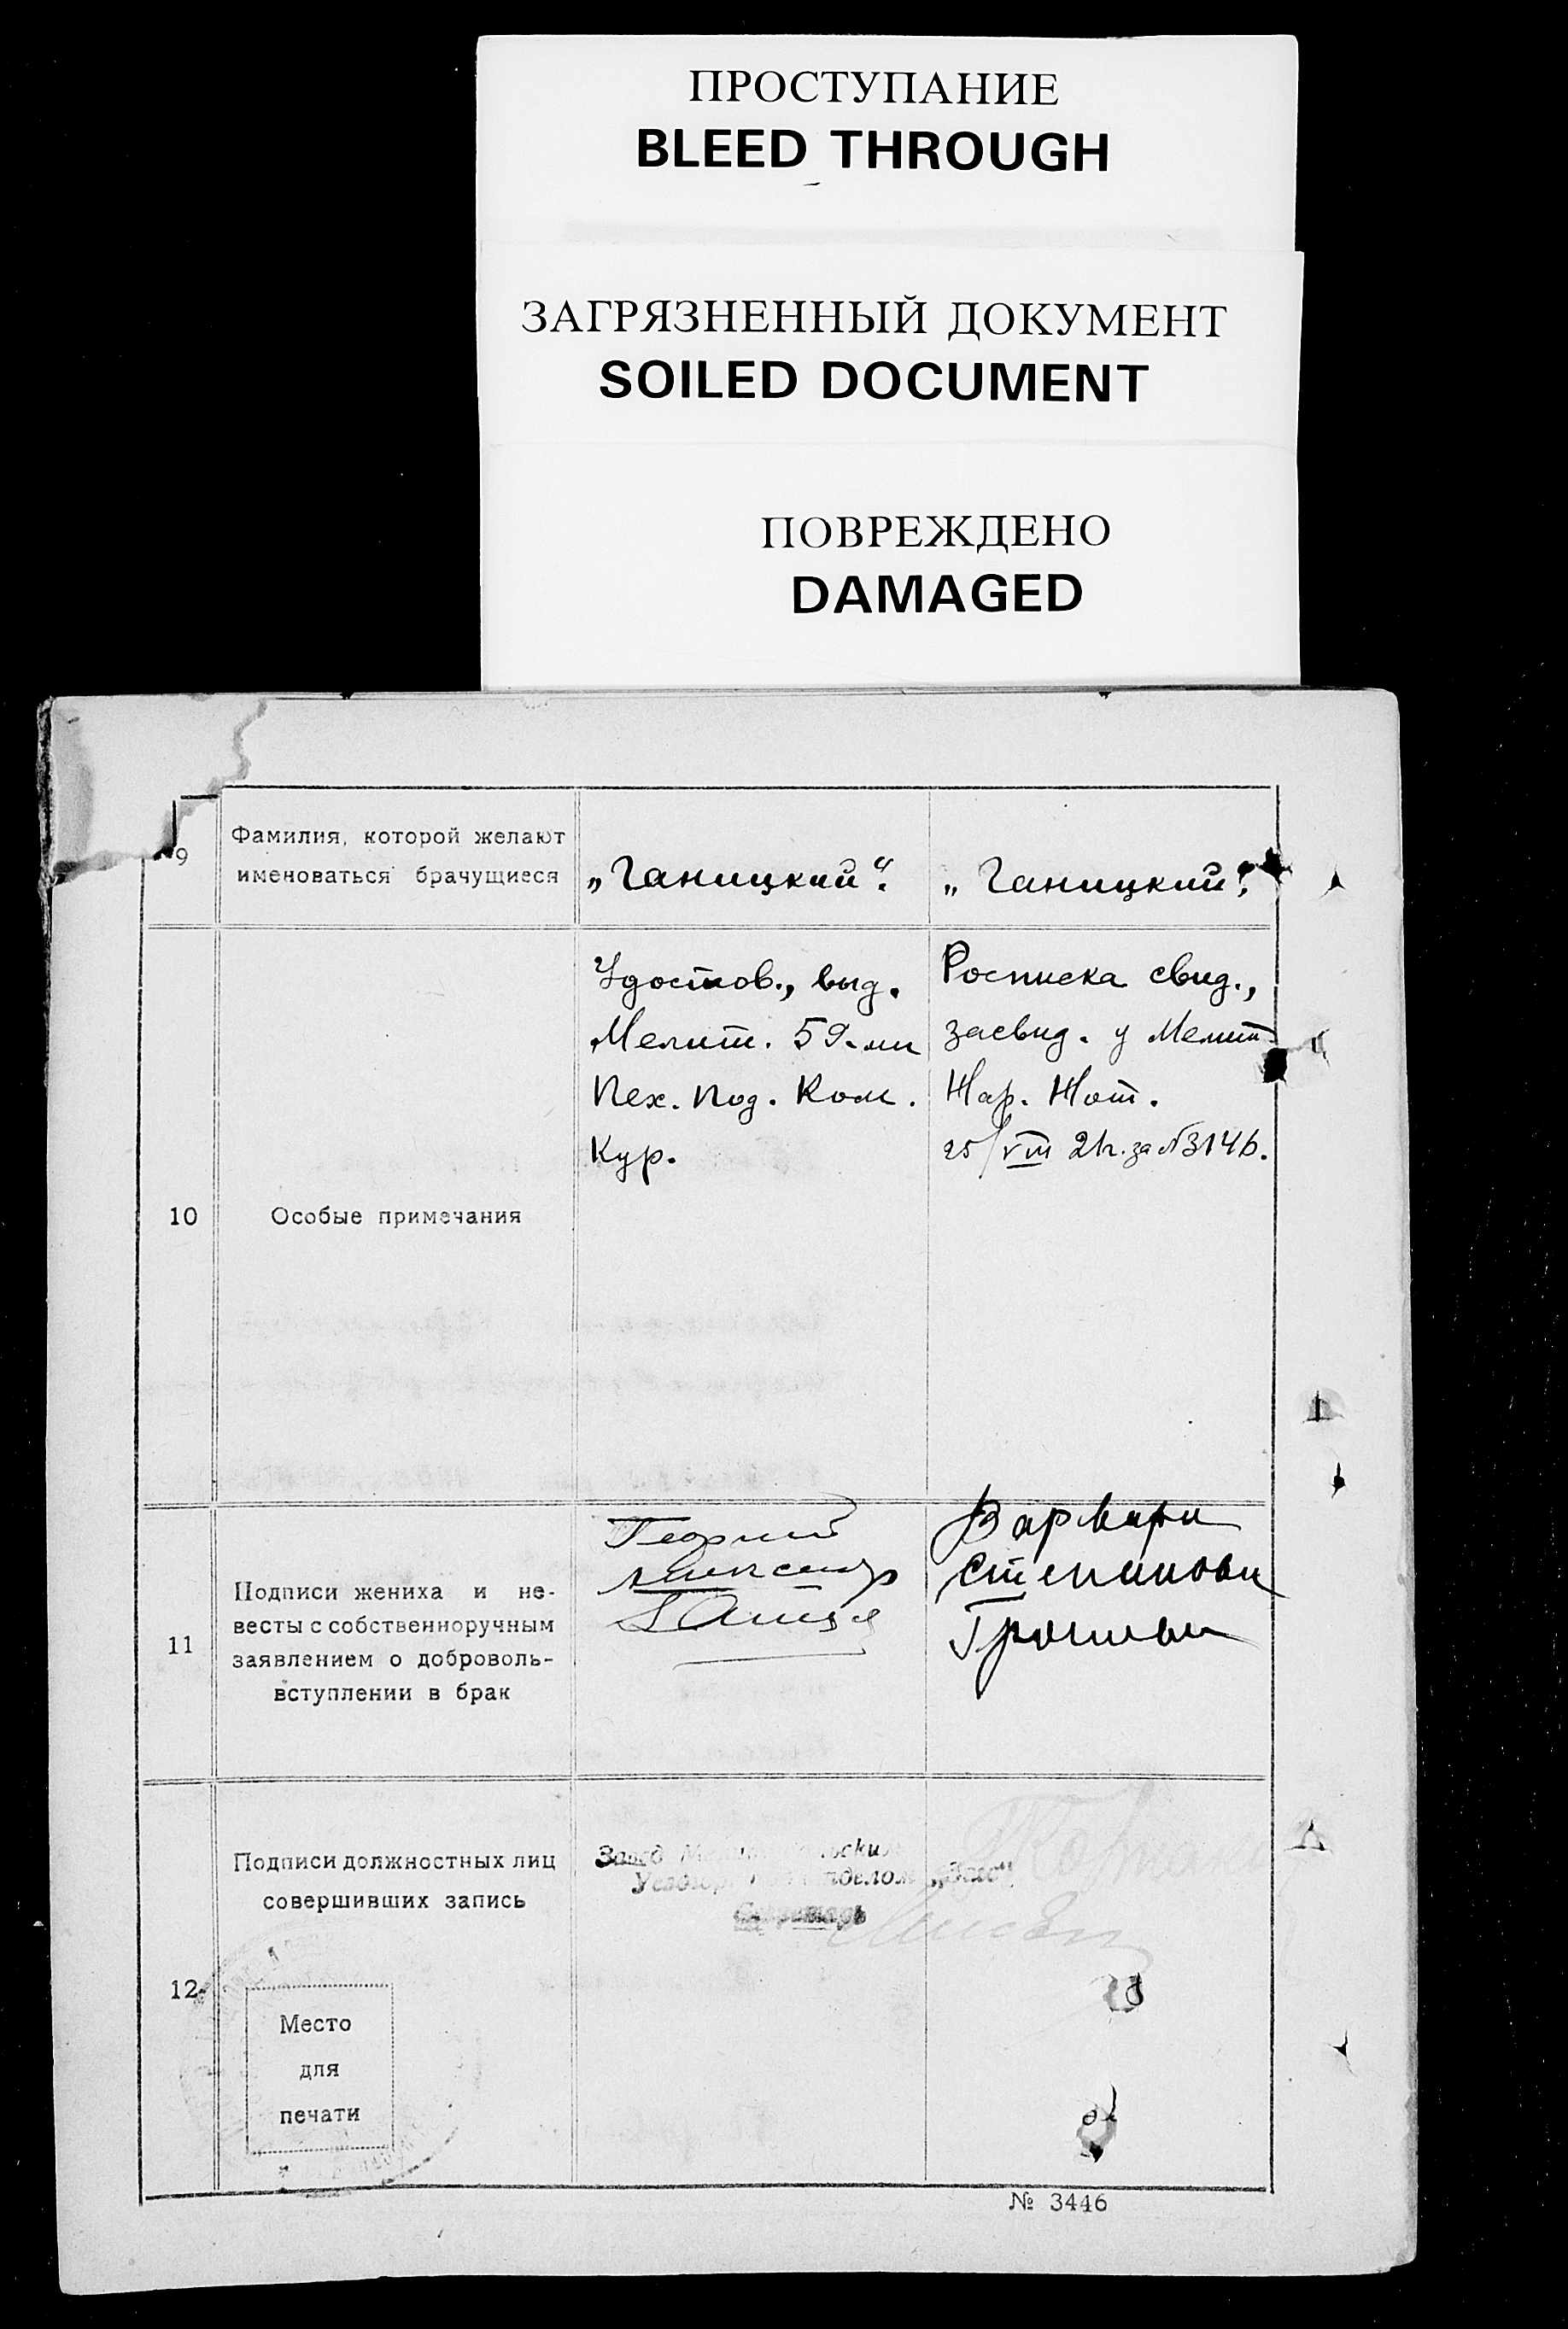 ПРОСТУПАНИЕ
BLEED THROUGH
ЗАГРЯЗНЕННЫЙ ДОКУМЕНТ
SOILED DOCUMENT
ПОВРЕЖДЕНО
DAMAGED
9
Фамилия, которой желают
именоваться брачущиеся
„Ганицкий“.
„Ганицкий“.
10
Особые примечания
Удостов., выд.
Мелит. 59-ми
Пех. Под. Ком.
Кур.
Росписка свид.,
засвид. у Мелит.
Нар. Нот.
25/VIII 21г. за №3146.
11
Подписи жениха и не-
весты с собственноручным
заявлением о доброволь-
вступлении в брак
Георгий
Варвара
Степанова
12
Подписи должностных лиц
совершивших запись
Завед
отделом „Загс“
Секретарь
Место
для
печати
№ 3446